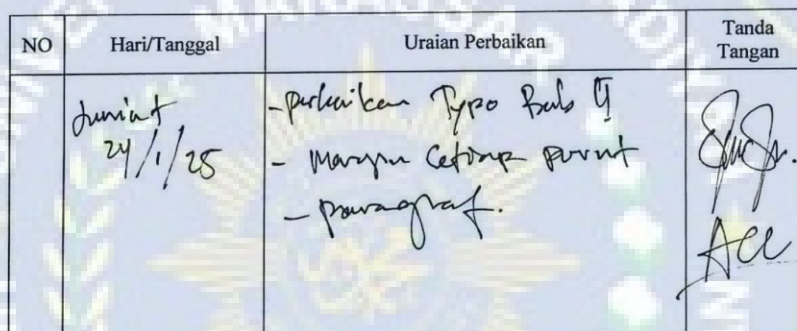 NO Hari/Tanggal Uraian Perbaikan Tanda Tangan
Jum'at
24/1/25
- perbaikan Typo Bab
- Margin setiap
- paragraf.
ACC